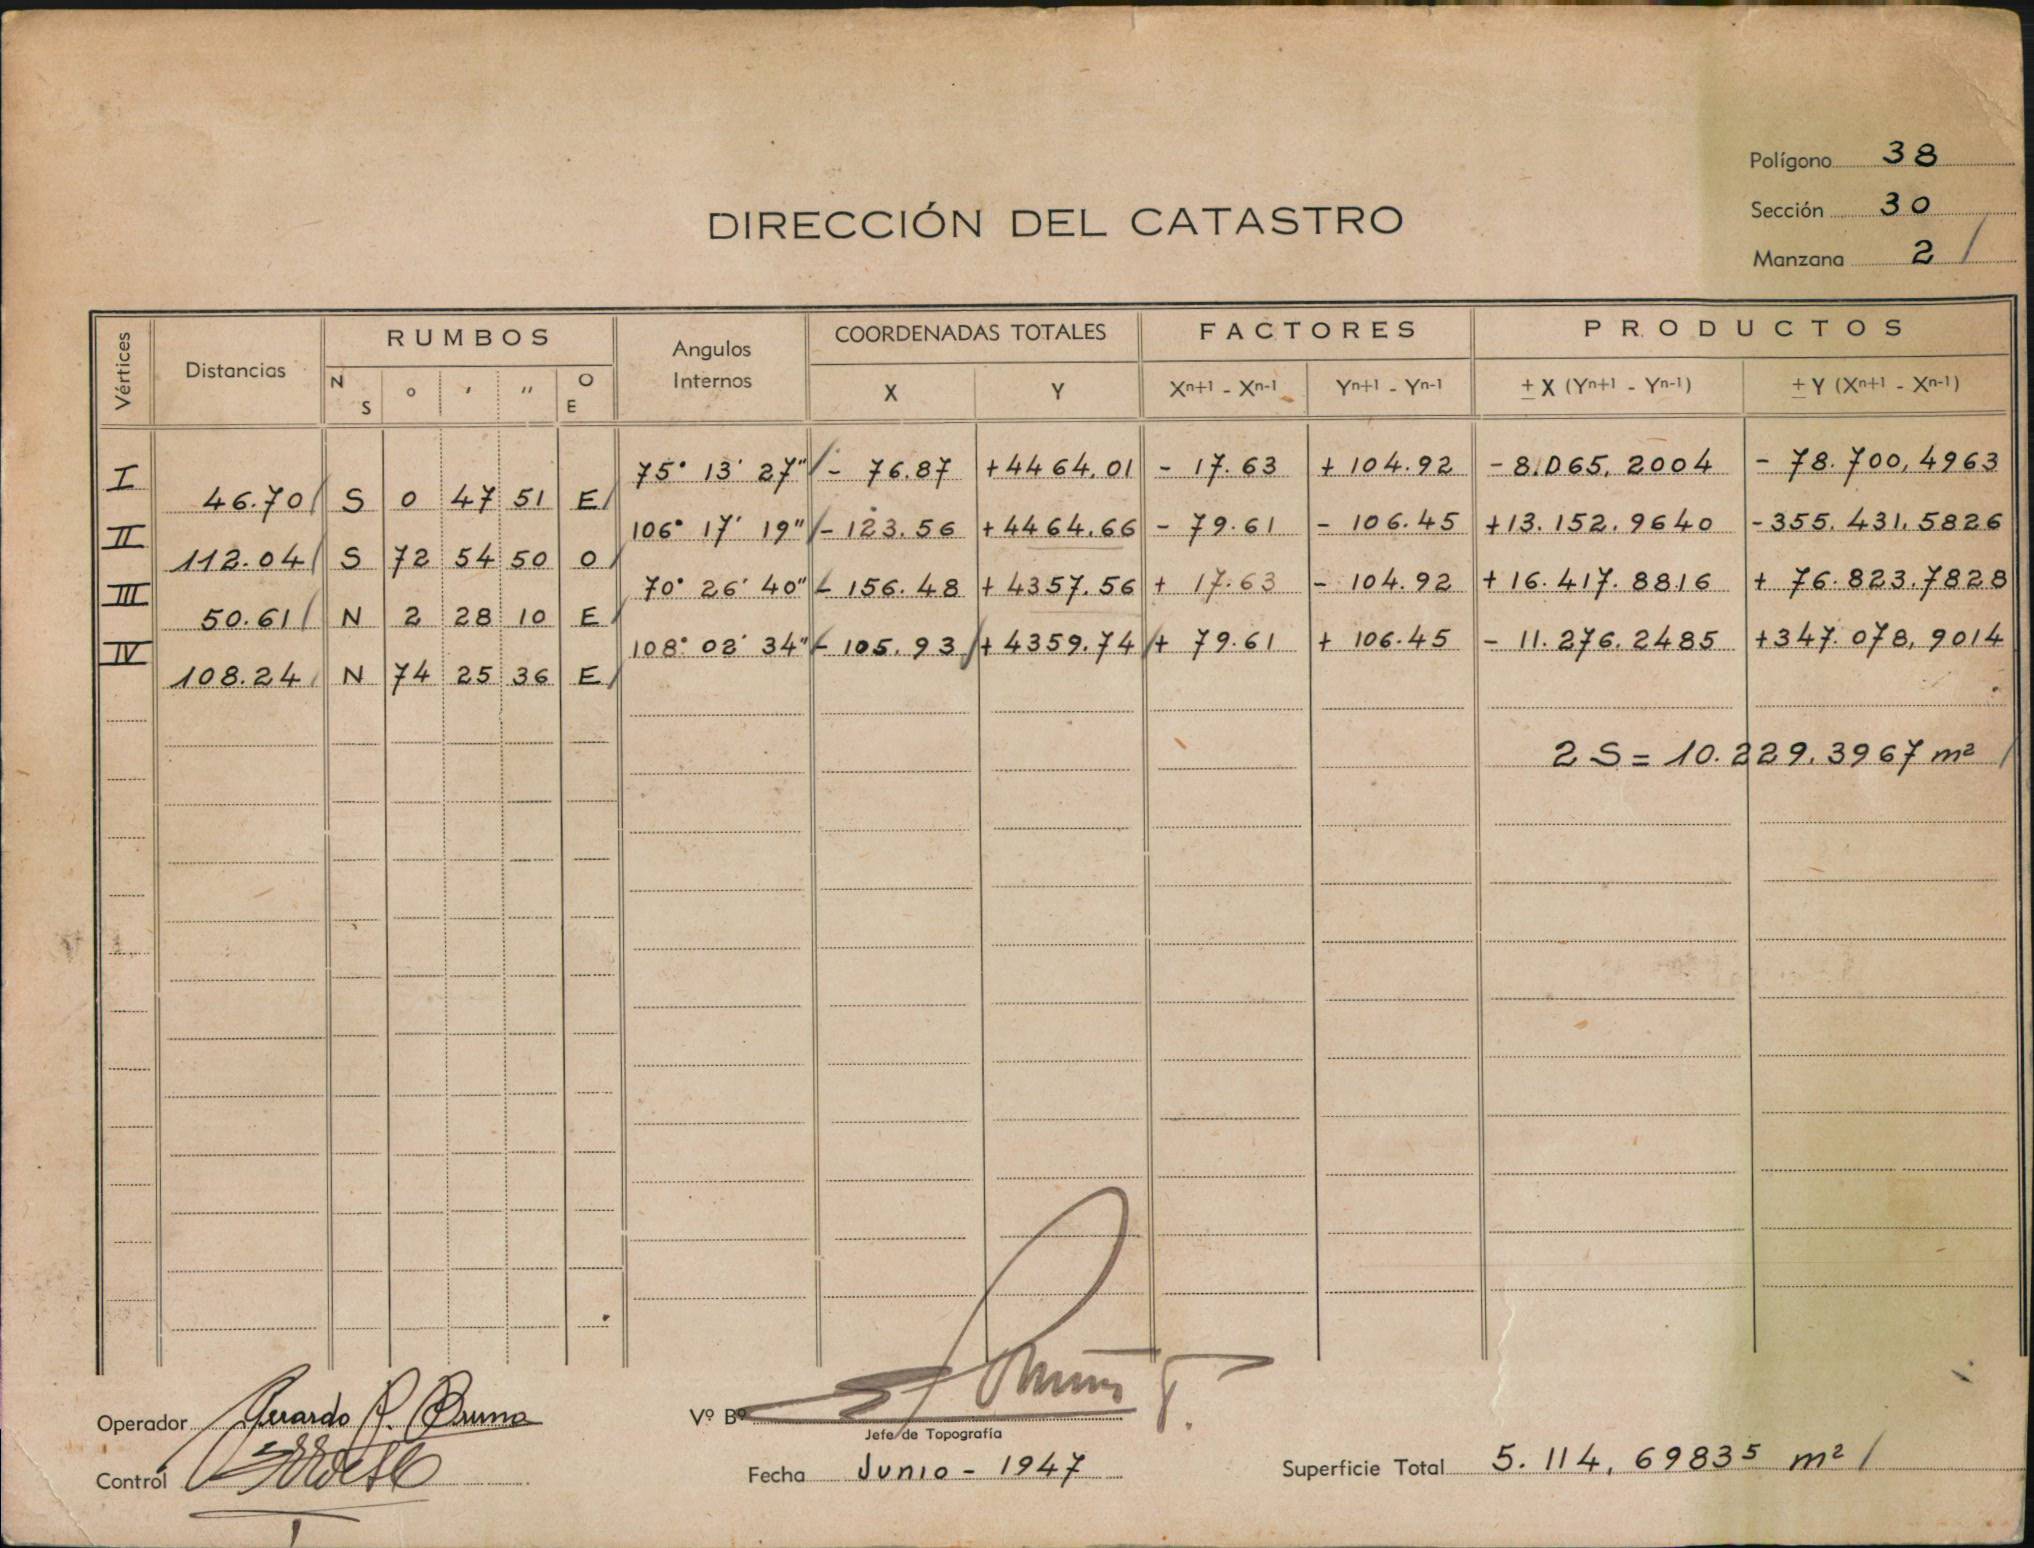 Polígono 38
Sección 30
Manzana 2
DIRECCIÓN DEL CATASTRO
Vértices Distancias RUMBOS Angulos Internos COORDENADAS TOTALES FACTORES PRODUCTOS
N S ° ' " O E X Y Xn+1 - Xn-1 Yn+1 - Yn-1 ± X (Yn+1 - Yn-1) ± Y (Xn+1 - Xn-1)
I 75° 13' 27" - 76.87 +4464.01 - 17.63 + 104.92 - 8.065,2004 - 78.700,4963
46.70 S 0 47 51 E
II 106° 17' 19" - 123.56 +4464.66 - 79.61 - 106.45 +13.152.9640 -355.431.5826
112.04 S 72 54 50 O
III 70° 26' 40" - 156.48 + 4357.56 + 17.63 - 104.92 + 16.417.8816 + 76.823.7828
50.61 N 2 28 10 E
IV 108° 02' 34" - 105.93 + 4359.74 + 79.61 + 106.45 - 11.276.2485 +347.078,9014
108.24 N 74 25 36 E
2 S = 10.229.3967 m²
Operador Gerardo R. Bruna
Vº Bº
Jefe de Topografía
Control
Fecha Junio - 1947
Superficie Total 5.114,69835 m²